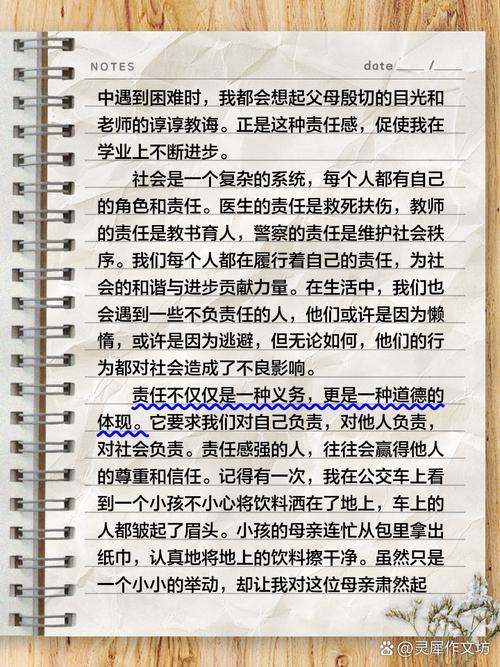 NOTES date /
中遇到困难时，我都会想起父母殷切的目光和
老师的谆谆教诲。正是这种责任感，促使我在
学业上不断进步。
社会是一个复杂的系统，每个人都有自己
的角色和责任。医生的责任是救死扶伤，教师
的责任是教书育人，警察的责任是维护社会秩
序。我们每个人都在履行着自己的责任，为社
会的和谐与进步贡献力量。在生活中，我们也
会遇到一些不负责任的人，他们或许是因为懒
惰，或许是因为逃避，但无论如何，他们的行
为都对社会造成了不良影响。
责任不仅仅是一种义务，更是一种道德的
体现。它要求我们对自己负责，对他人负责，
对社会负责。责任感强的人，往往会赢得他人
的尊重和信任。记得有一次，我在公交车上看
到一个小孩不小心将饮料洒在了地上，车上的
人都皱起了眉头。小孩的母亲连忙从包里拿出
纸巾，认真地将地上的饮料擦干净。虽然只是
一个小小的举动，却让我对这位母亲肃然起
灵犀作文坊